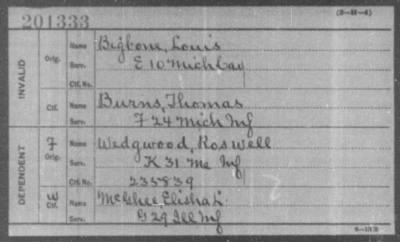 201333
(3-H-4)
INVALID
Orig.
Name Bigbone, Louis
Serv. E 10 Mich Cav
Ctf. No.
Ctf.
Name Burns, Thomas
Serv. F 24 Mich Inf
DEPENDENT
F
Orig.
Name Wedgwood, Roswell
Serv. K 31 Me Inf
Ctf. No. 235839
W
Ctf.
Name McGhee Elisha L.
Serv. G 29 Ill Inf